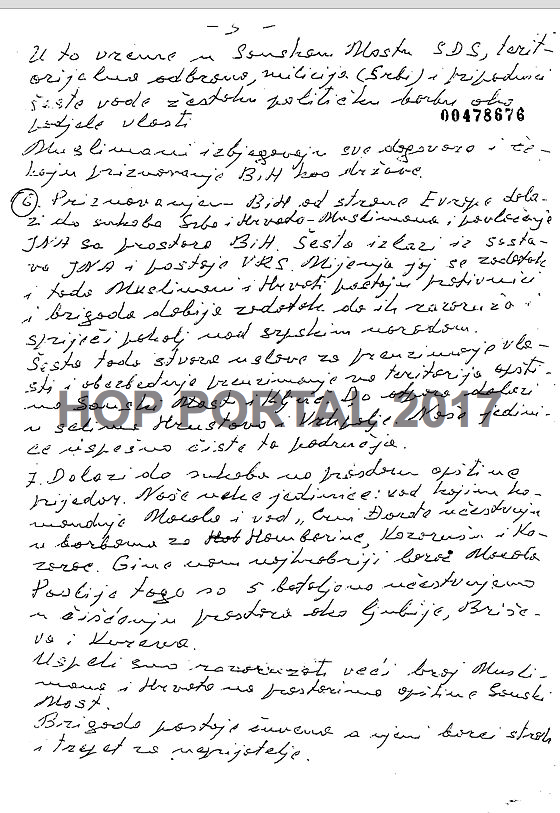 - 5 -
U to vreme u Sanskom Mostu SDS, terit-
orijalna odbrana, milicija (Srbi) i pripadnici
šeste vode žestoku političku borbu oko
podjele vlasti
00478676
Muslimani izbjegavaju sve dogovore i če-
kaju priznavanje BiH kao države.
6. Priznavanjem BiH od strane Evrope dola-
zi do sukoba Srba i Hrvata-Muslimana i povlačenje
JNA sa prostora BiH. Šesta izlazi iz sasta-
va JNA i postaje VRS. Mijenja joj se zadatak
i tada Muslimani i Hrvati postaju protivnici
i brigada dobija zadatak da ih razoruža i
spriječi pokolj nad srpskim narodom.
Šesta tada stvara uslove za preuzimanje vla-
sti i obezbeđuje preuzimanje na teritoriji opšti-
na Sanski Most i Ključ. Do otpora dolazi
u selima Hrustovo i Vrhpolje. Naše jedini-
ce uspešno čiste ta područja.
HOP PORTAL 2017
7. Dolazi do sukoba na prostoru opštine
Prijedor. Naše neke jedinice: vod kojim ko-
manduje Macola i vod "Crni Đorđe" učestvuju
u borbama za Hambarine, Kozarušu i Ko-
zarac. Gine nam najhrabriji borac Macola
Poslije toga sa 5 bataljona učestvujemo
u čišćenju prostora oko Ljubije, Briše-
va i Kurevа.
Uspeli smo razoružati veći broj Musli-
mana i Hrvata na prostorima opštine Sanski
Most.
Brigada postaje čuvena a njeni borci strah
i trepet za neprijatelje.